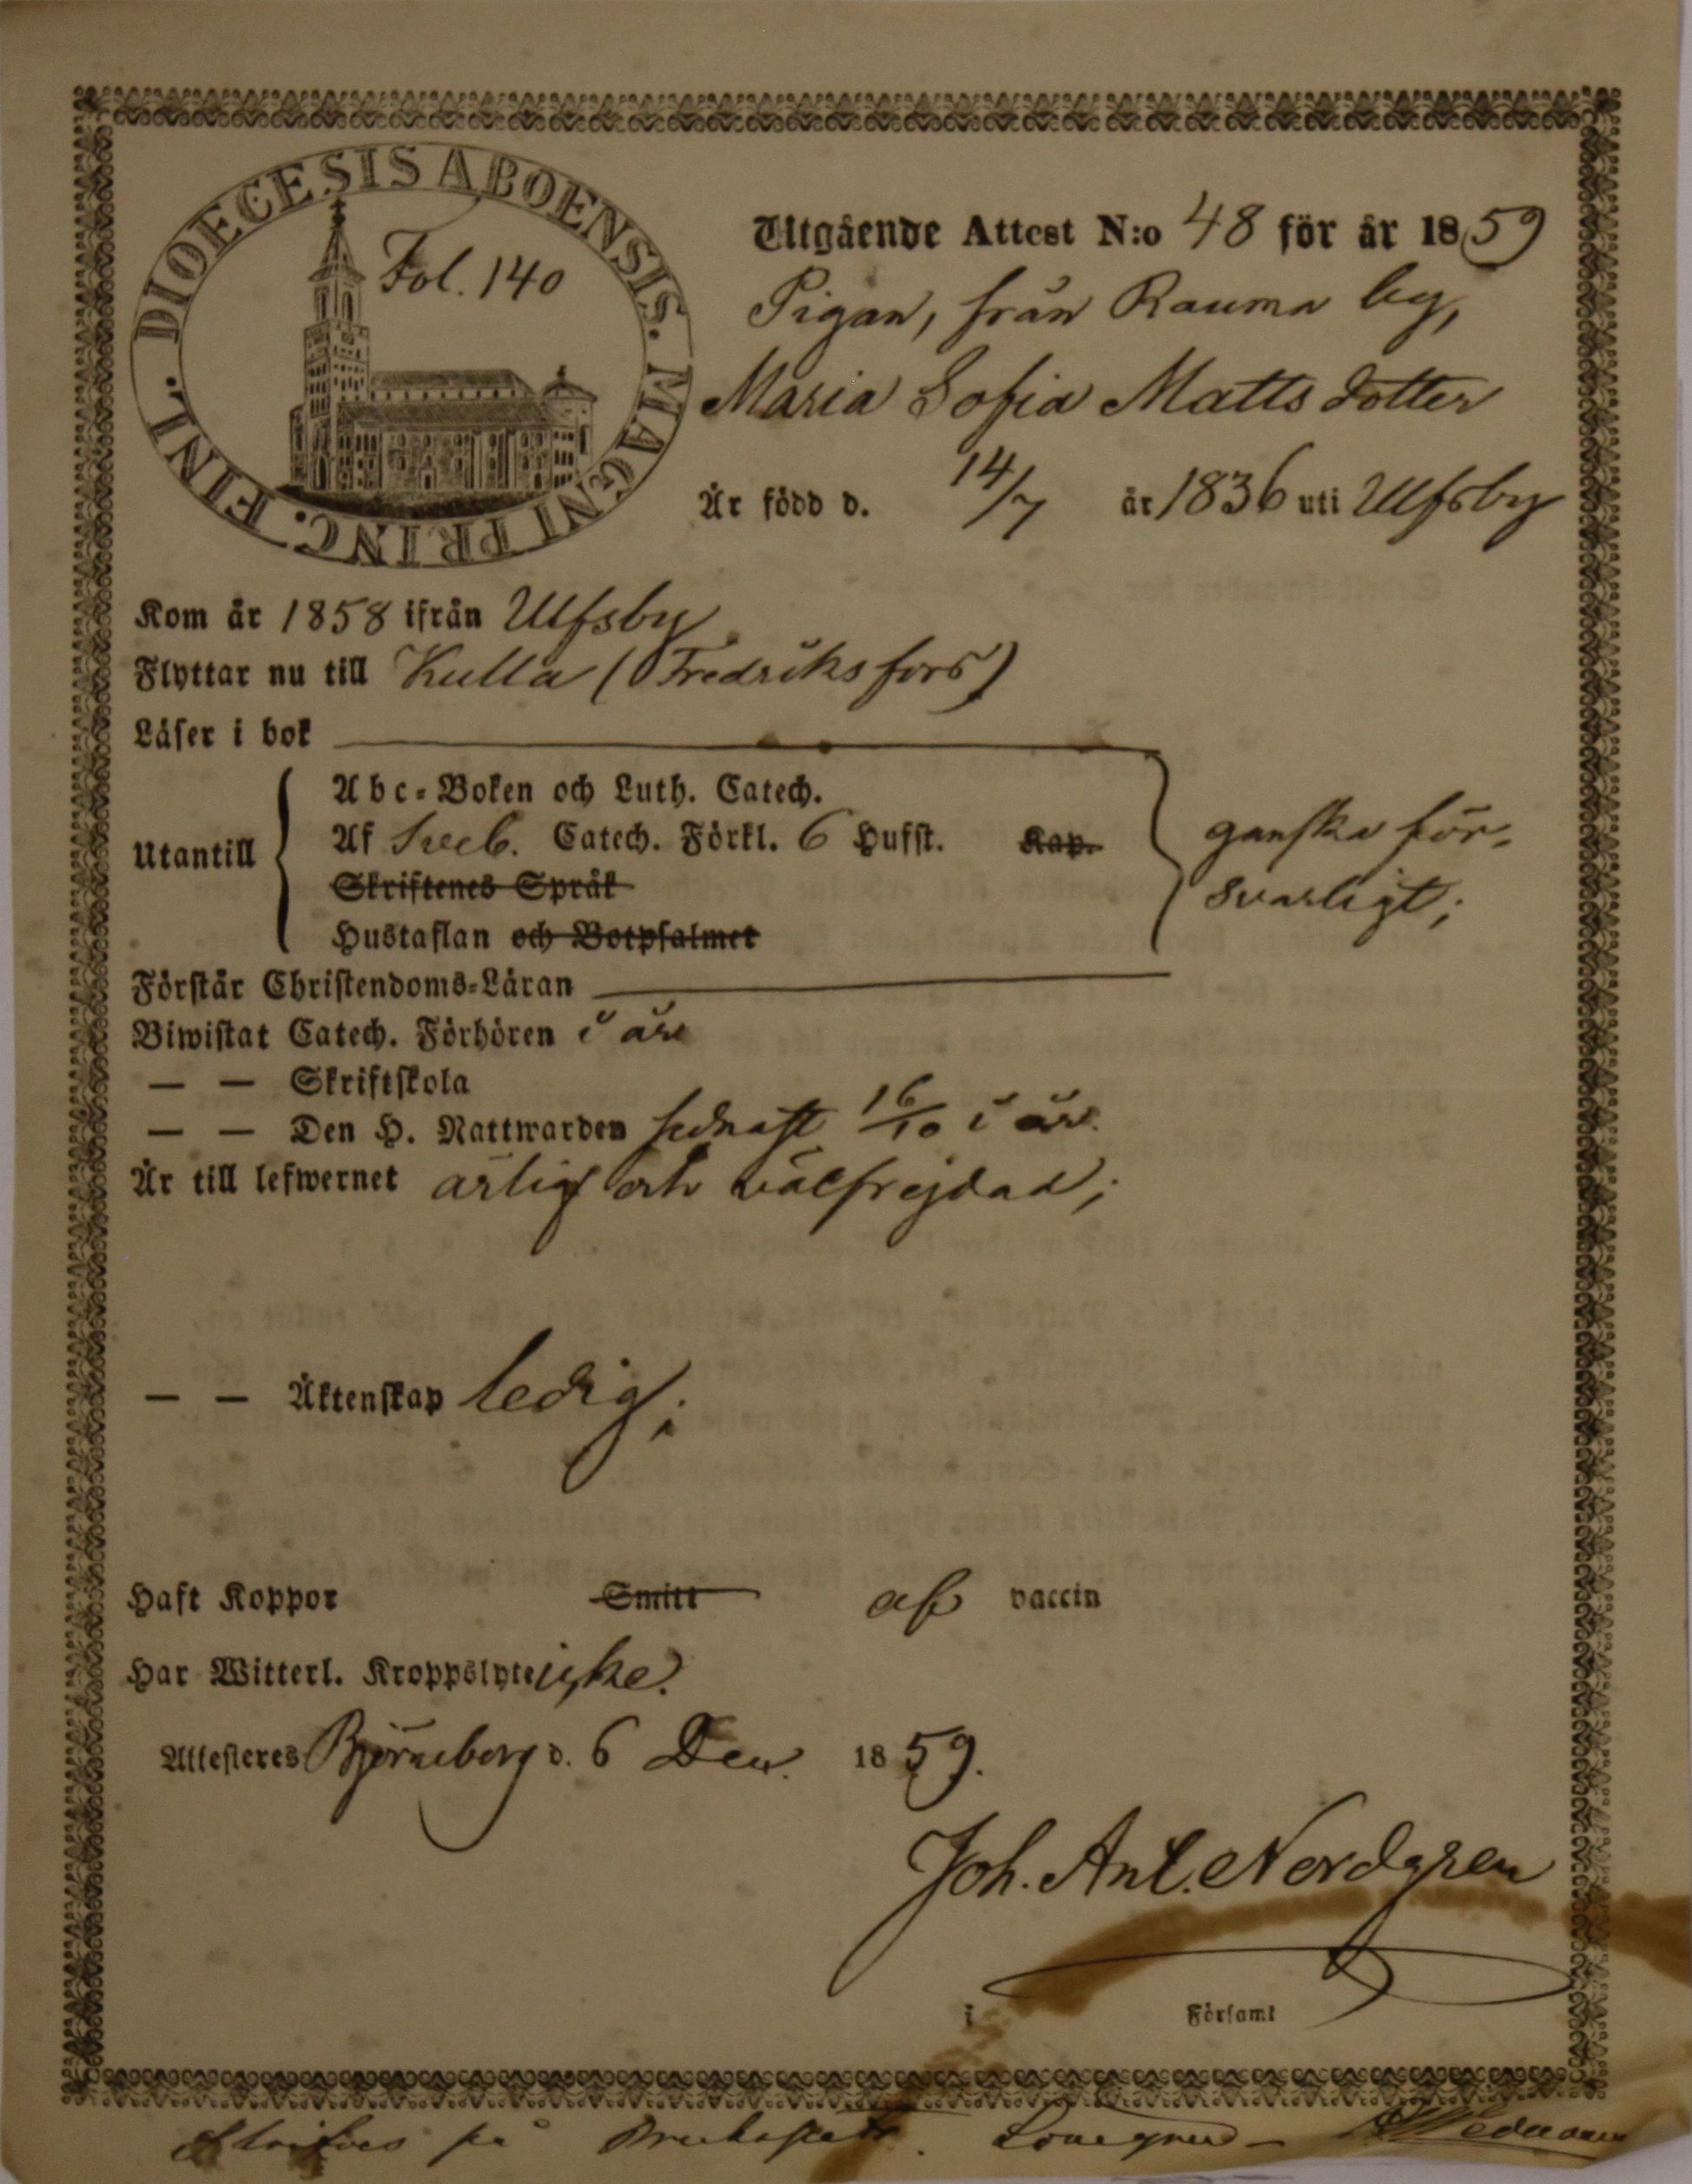 DIOECESIS ABOENSIS. MAGNI PRINC. FINL.
Fol. 140
Utgående Attest N:o 48 för år 1859
Pigan, från Rauma by,
Maria Sofia Matts dotter
Är född d. 14/7 år 1836 uti Ulfsby
Kom år 1858 ifrån Ulfsby
Flyttar nu till Kulla (Fredriksfors)
Läser i bok
Abc-Boken och Luth. Catech.
Utantill Af Sveb. Catech. Förkl. 6 Hufst. Kap. ganska för-
Skriftenes Språk svarligt;
Hustaflan och Botpsalmer
Förstår Christendoms-Läran
Biwistat Catech. Förhören i år
— — Skriftskola
— — Den H. Nattwarden sednast 16/10 i år.
Är till lefwernet ärlig och välfrejdad;
— — Äktenskap ledig;
Haft Koppor Smitt af vaccin
Har Witterl. Kroppslyte icke.
Attesteres Björneborg d. 6 Dec. 1859.
Joh. Ant. Nordgren
i Församl
på